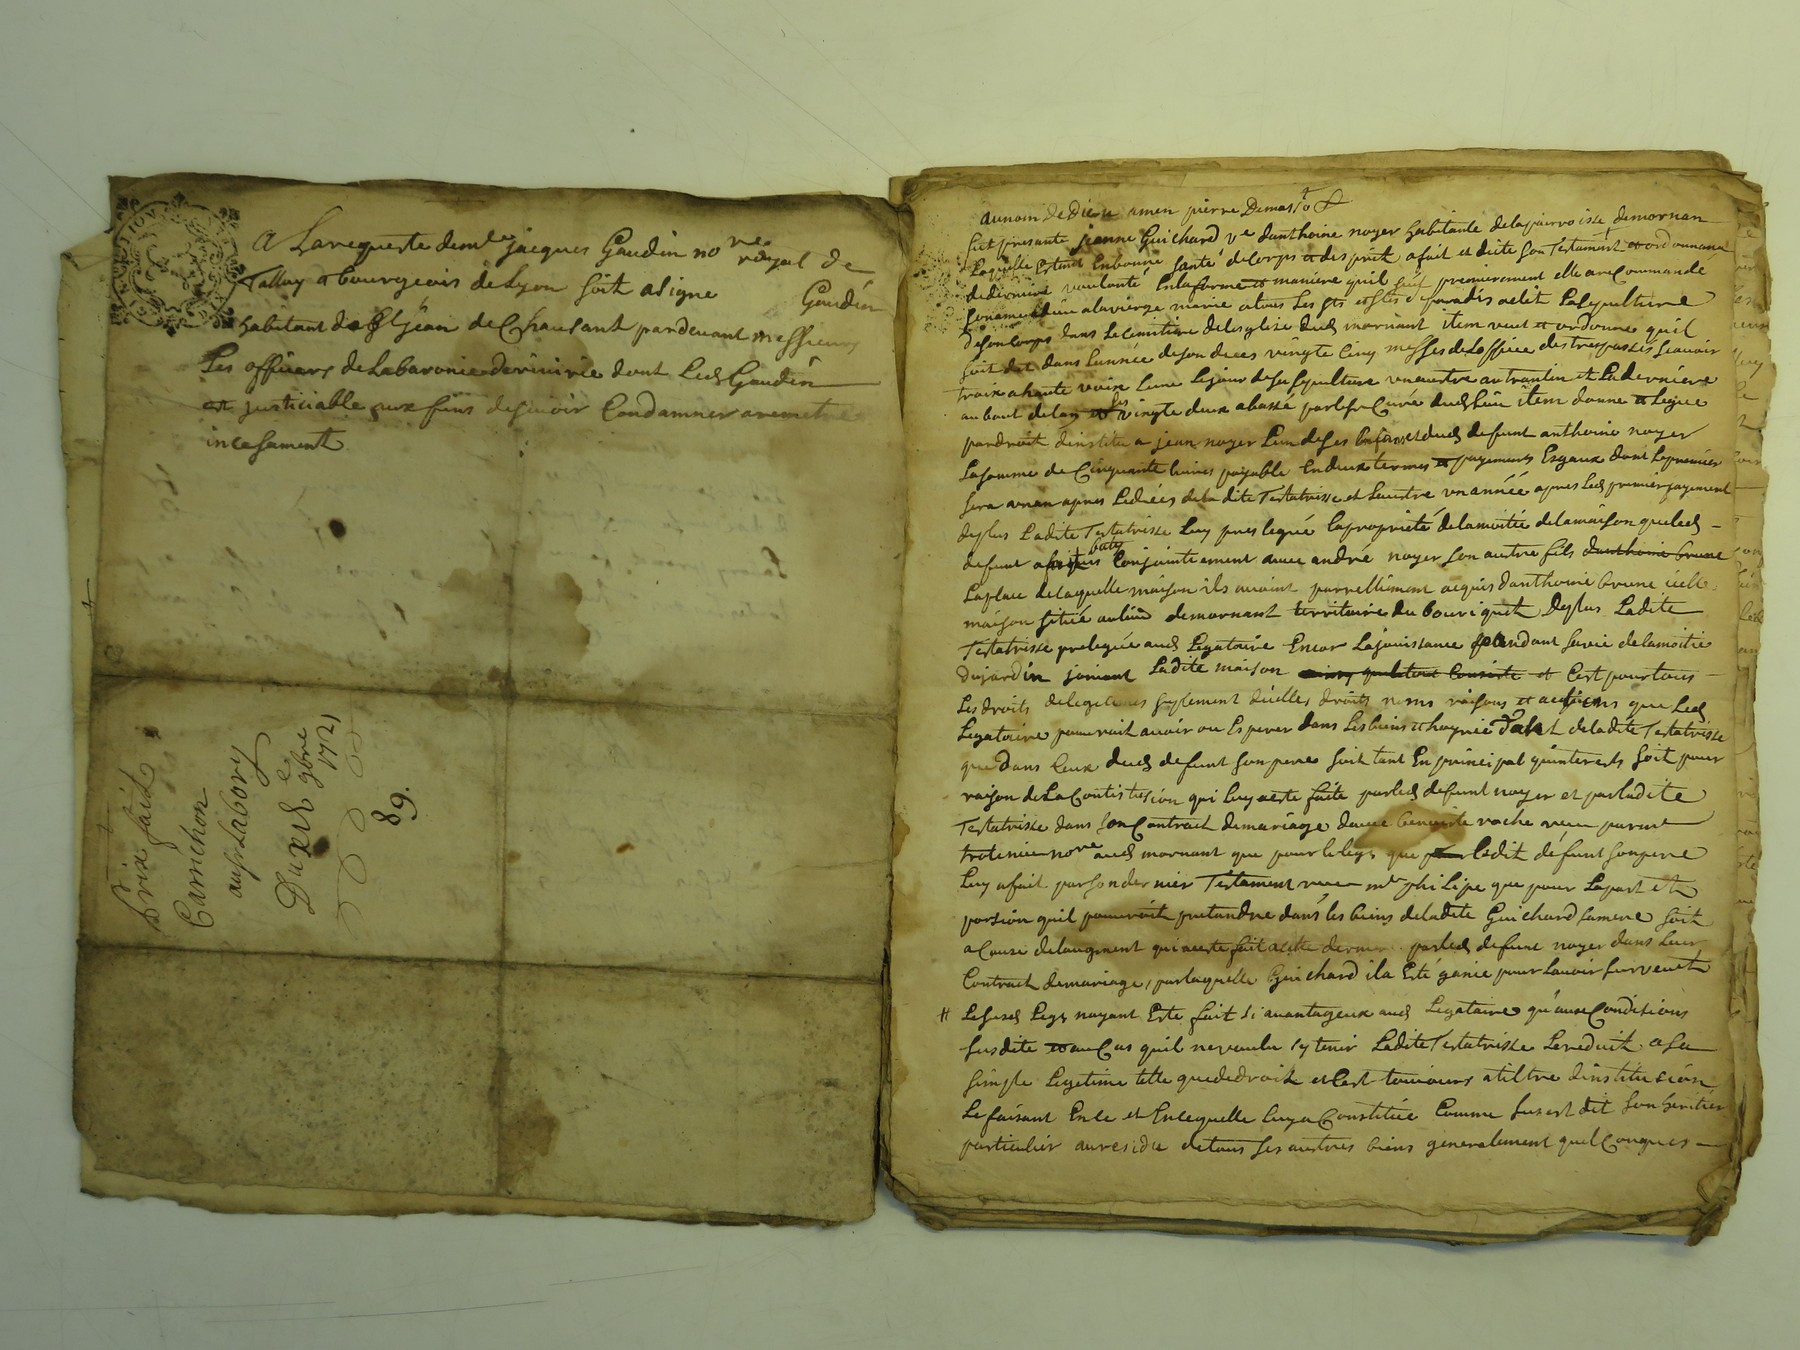 A La requeste de m.e jacques Gaudin no.re royal de
Talluy & bourgeois de Lyon soit asigné Gaudin
habitant de St jean de Chausant pardevant messieurs
Les officiers de La baronie de rivirie dont Led Gaudin
est justiciable aux fins de se voir Condamner a remettre
incesament
Prix fait
Carrichon
aux Labory
Du xxi 9bre
1721
89.
au nom de Dieu amen pierre Demas
fut présante jeanne Guichard ve danthoine noyer habitante de la parroisse de mornan
Laquelle Estant En bonne santé de Corps et desprit a fait et dicte son Testament et ordonnance
de derniere voulonté En la forme et maniere quil suit premierement elle a recommandé
son ame a Dieu a la vierge marie a tous Les sts et stes de paradis a elit sa sepulture
de son Corps dans Le Cimitiere de Leglise dud mornant item veut et ordonne quil
soit dit dans L'année de son deces vingte Cinq messes de Loffice des trespassés scavoir
troix a haute voix Lune Le jour de sa sepulture une autre au trantin et La derniere
au bout de Lan et Les vingte deux a basse par Le sr Curé dud Lieu item donne et Legue
par droit dinstitu a jean noyer L'un de ses Enfans et dud defunt anthoine noyer
La somme de Cinquante livres payable En deux termes et payements Esgaux dont Le premier
sera un an apres Le deces de la dite Testatrisse et Lautre un année apres Led premier payement
de plus Ladite Testatrisse Luy preleguè La proprieté de la moitié de la maison que led
defunt a baty Conjointement avec andré noyer son autre fils danthoine brune
La place de laquelle maison ils avoint pareillement acquis danthoine brune icelle
maison sitüé au lieu de mornant territoire du bouriquet De plus Ladite
Testatrisse prelegue aud Legataire Encor La jouissance pendant sa vie de la moitié
du jardin joignant Ladite maison et C'est pour tous
Les droits de legitimes suplement d'icelles droits noms raisons et actions que Led
Legataire pourroit avoir ou Esperer dans Les biens et hoyrie tant de la dite Testatrisse
que dans Ceux dud defunt son pere soit tant En principal qu'interests soit pour
raison de La Constitusion qui luy a este faite par led defunt noyer et par ladite
Testatrisse dans son Contract de mariage avec benoiste roche receu par me
nore aud mornant que pour le legs que ledit défunt son pere
Luy a fait par son dernier Testament receu me philipe que pour La part et
porsion quil pouvroit pretandre dans les biens de la dite Guichard sa mere soit
a Cause de laugment qui a esté fait a cette derniere par led defunt noyer dans leur
Contract de mariage, par laquelle Guichard il a Esté gagné pour Lavoir survescu
# Le susd Legs n'ayant Esté fait si avantageux aud Legataire qu'aux Conditions
susdite et au Cas quil ne voulu s'y tenir Ladite Testatrisse Le reduit a sa
simple Legitime telle que de droit et C'est toujours a tiltre dinstitusion
Le faisant En ce et En Lequelle Luy a Constitüé Comme sus est dit son heritier
particulier au residu de tous ses autres biens generalement quelconques